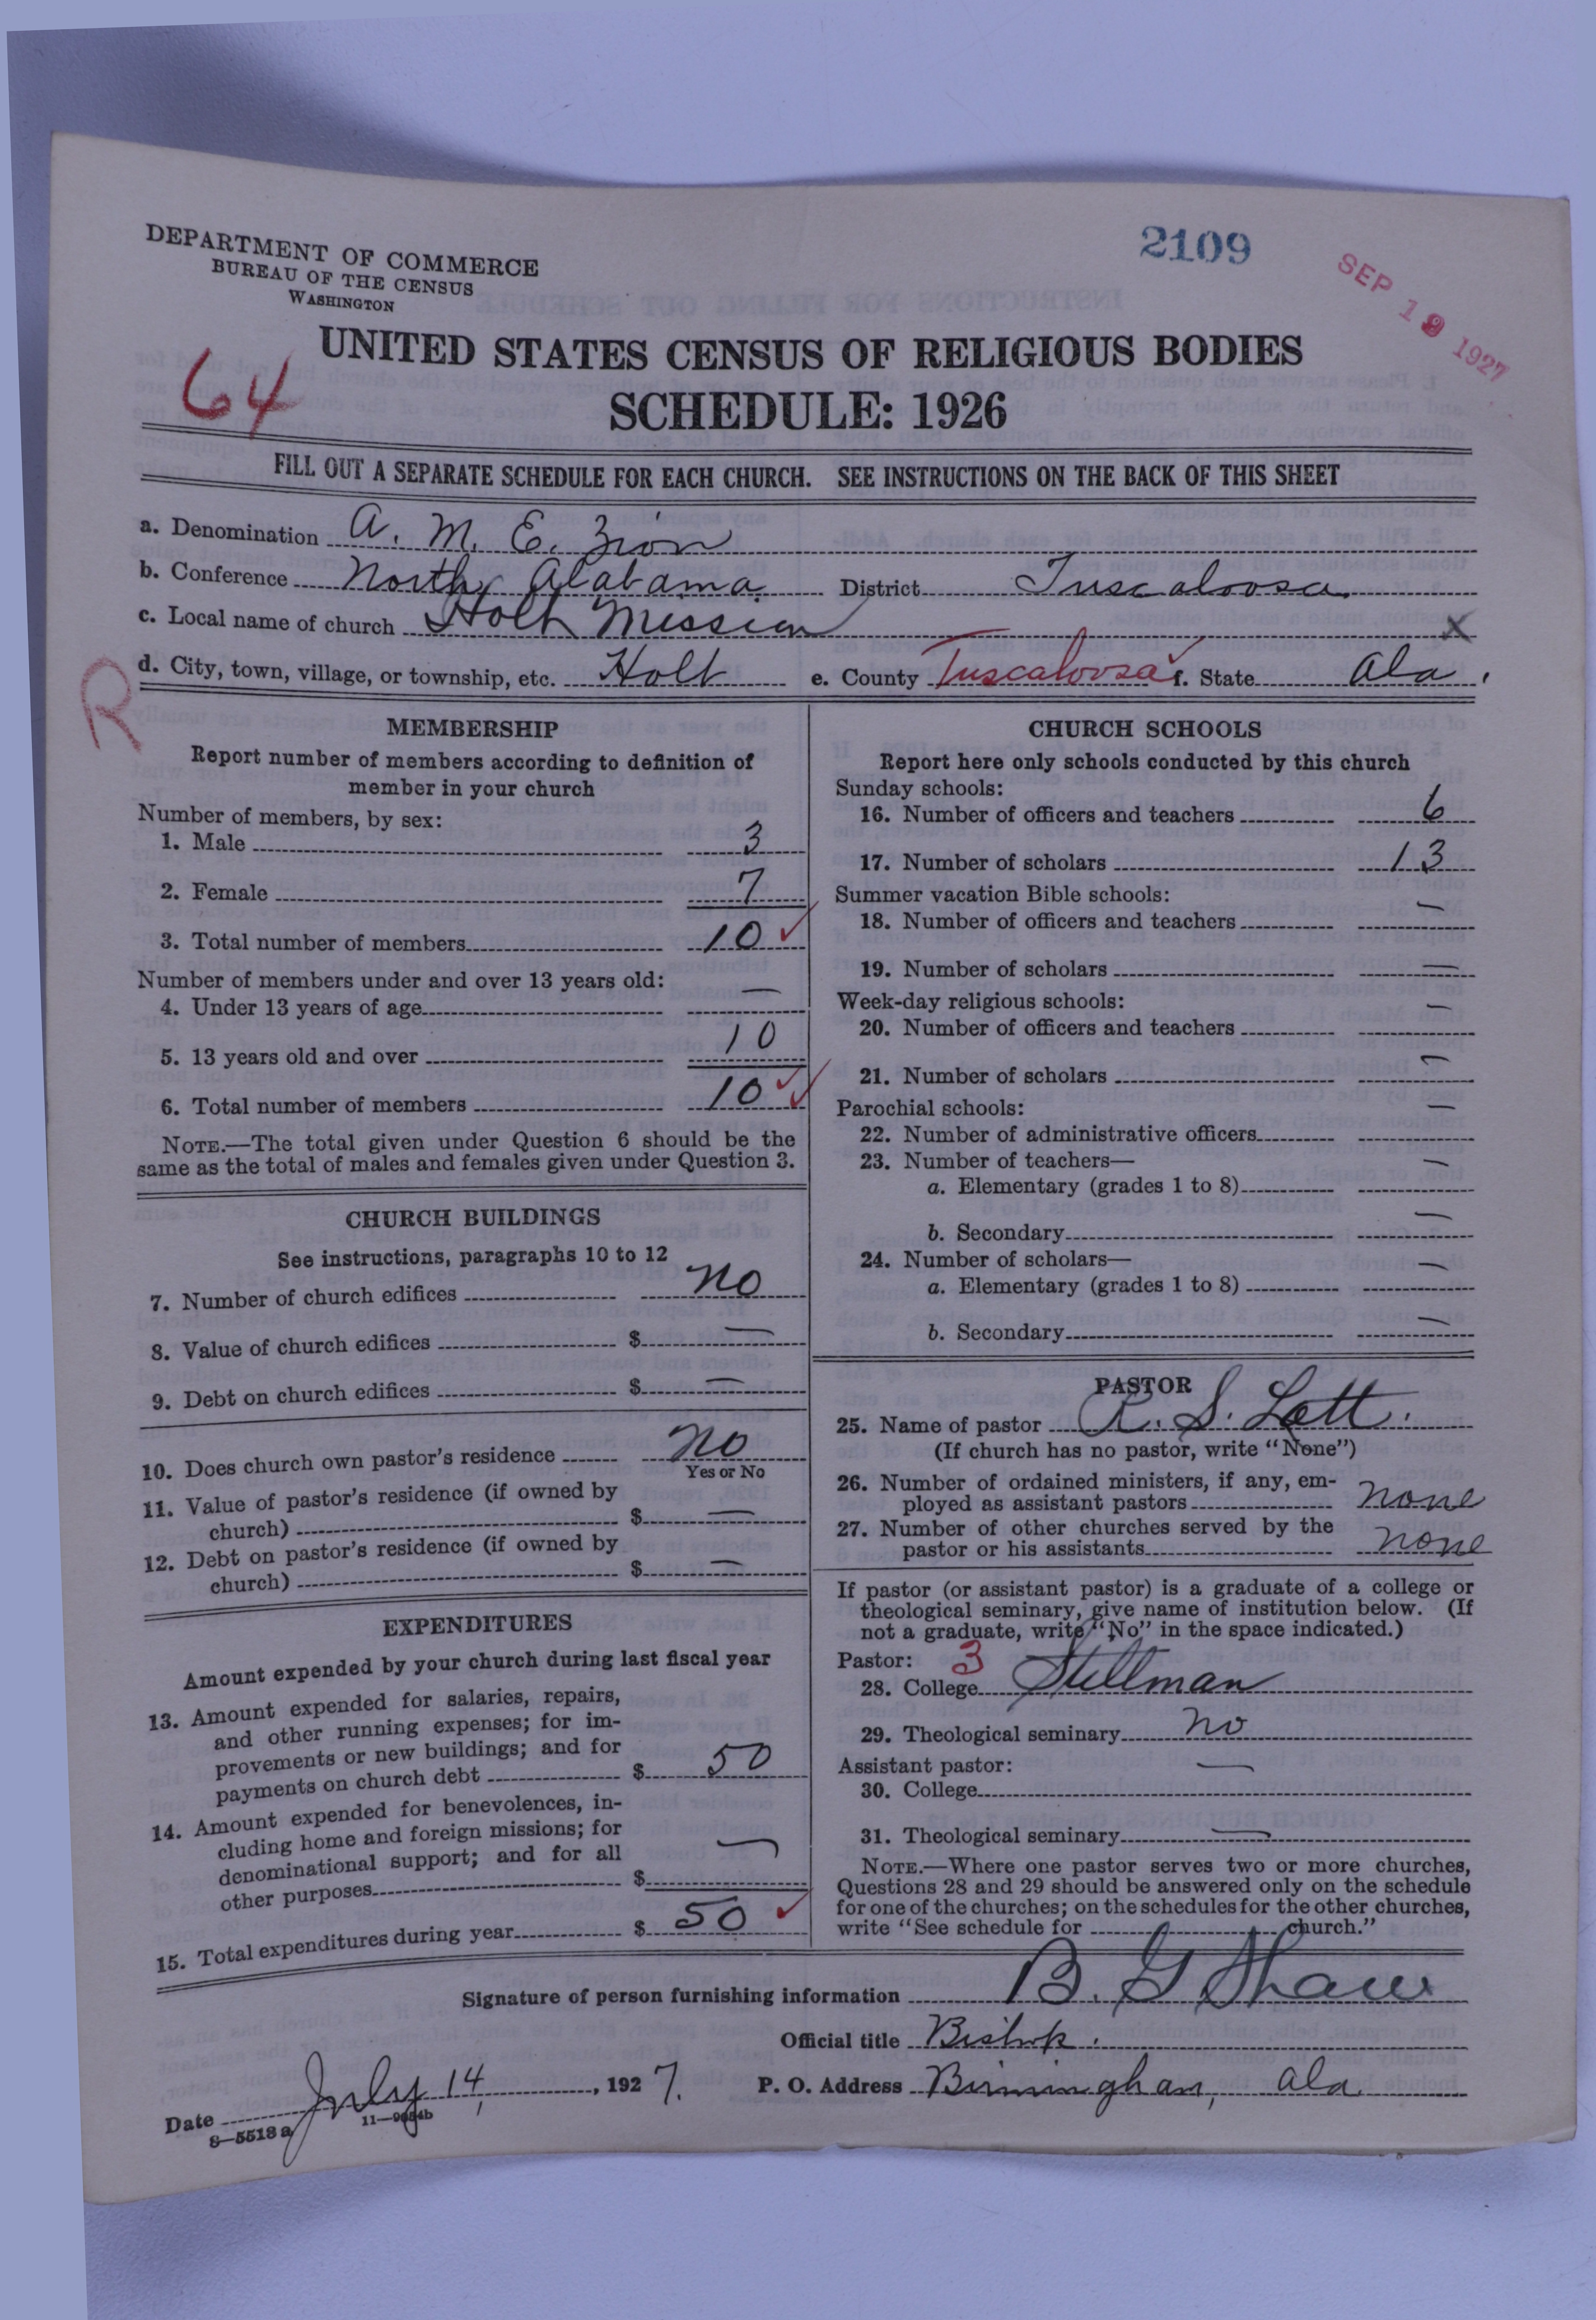 DEPARTMENT OF COMMERCE
BUREAU OF THE CENSUS
WASHINGTON
2109
SEP 19 1927
64
UNITED STATES CENSUS OF RELIGIOUS BODIES
SCHEDULE: 1926
FILL OUT A SEPARATE SCHEDULE FOR EACH CHURCH. SEE INSTRUCTIONS ON THE BACK OF THIS SHEET
a. Denomination A. M. E. Zion
b. Conference North Alabama District Tuscaloosa
c. Local name of church Holt Mission X
R
d. City, town, village, or township, etc. Holt e. County Tuscaloosa f. State Ala.
MEMBERSHIP
Report number of members according to definition of
member in your church
Number of members, by sex:
1. Male 3
2. Female 7
3. Total number of members 10
Number of members under and over 13 years old:
4. Under 13 years of age —
5. 13 years old and over 10
6. Total number of members 10
NOTE.—The total given under Question 6 should be the
same as the total of males and females given under Question 3.
CHURCH BUILDINGS
See instructions, paragraphs 10 to 12
7. Number of church edifices no
8. Value of church edifices $ —
9. Debt on church edifices $ —
10. Does church own pastor's residence no
Yes or No
11. Value of pastor's residence (if owned by
church) $ —
12. Debt on pastor's residence (if owned by
church) $ —
EXPENDITURES
Amount expended by your church during last fiscal year
13. Amount expended for salaries, repairs,
and other running expenses; for im-
provements or new buildings; and for
payments on church debt $ 50
14. Amount expended for benevolences, in-
cluding home and foreign missions; for
denominational support; and for all
other purposes $ —
15. Total expenditures during year $ 50
CHURCH SCHOOLS
Report here only schools conducted by this church
Sunday schools:
16. Number of officers and teachers 6
17. Number of scholars 13
Summer vacation Bible schools:
18. Number of officers and teachers —
19. Number of scholars —
Week-day religious schools:
20. Number of officers and teachers —
21. Number of scholars —
Parochial schools:
22. Number of administrative officers —
23. Number of teachers—
a. Elementary (grades 1 to 8) —
b. Secondary —
24. Number of scholars—
a. Elementary (grades 1 to 8) —
b. Secondary —
PASTOR
25. Name of pastor R. S. Lott.
(If church has no pastor, write "None")
26. Number of ordained ministers, if any, em-
ployed as assistant pastors none
27. Number of other churches served by the
pastor or his assistants none
If pastor (or assistant pastor) is a graduate of a college or
theological seminary, give name of institution below. (If
not a graduate, write "No" in the space indicated.)
Pastor: 3
28. College Stillman
29. Theological seminary no
Assistant pastor:
30. College —
31. Theological seminary —
NOTE.—Where one pastor serves two or more churches,
Questions 28 and 29 should be answered only on the schedule
for one of the churches; on the schedules for the other churches,
write "See schedule for church."
Signature of person furnishing information B. G Shaw
Official title Bishop.
Date July 14, 1927. P. O. Address Birmingham, Ala
8—5513a 11—9654b